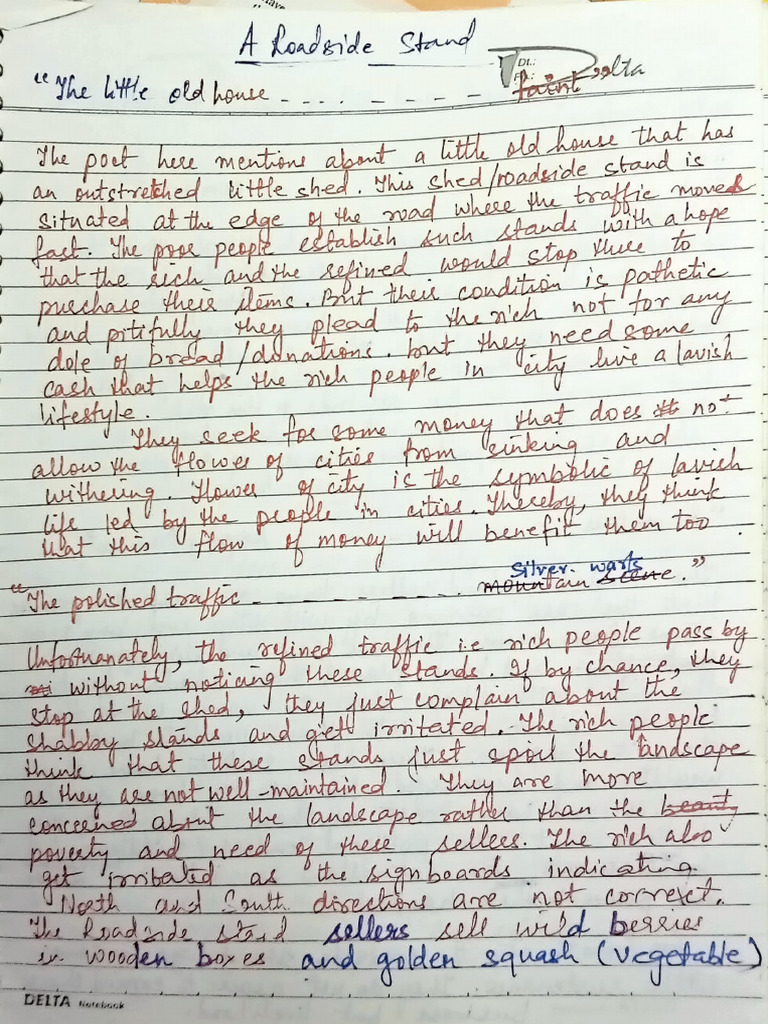 A Roadside Stand
DT.:
Pg.:
Delta
"The little old house .... - - - - - faint"
The poet here mentions about a little old house that has
an outstretched little shed. This shed/roadside stand is
situated at the edge of the road where the traffic moved
fast. The poor people establish such stands with a hope
that the rich and the refined would stop there to
purchase their items. But their condition is pathetic
and pitifully they plead to the rich not for any
dole of bread/donations. but they need some
cash that helps the rich people in city live a lavish
lifestyle.
They seek for some money that does not
allow the flower of cities from sinking and
withering. Flower of city is the symbolic of lavish
life led by the people in cities. Thereby, they think
that this flow of money will benefit them too.
Silver warts
"The polished traffic - - - - - - - . mountain scene."
Unfortunately, the refined traffic i.e rich people pass by
without noticing these stands. If by chance, they
stop at the shed, they just complain about the
shabby stands and get irritated. The rich people
think that these stands just spoil the landscape
as they are not well-maintained. They are more
concerned about the landscape rather than the beauty
poverty and need of these sellers. The rich also
get irritated as the signboards indicating
North and South directions are not correct.
The Roadside stand sellers sell wild berries
in wooden boxes and golden squash (vegetable)
DELTA Notebook